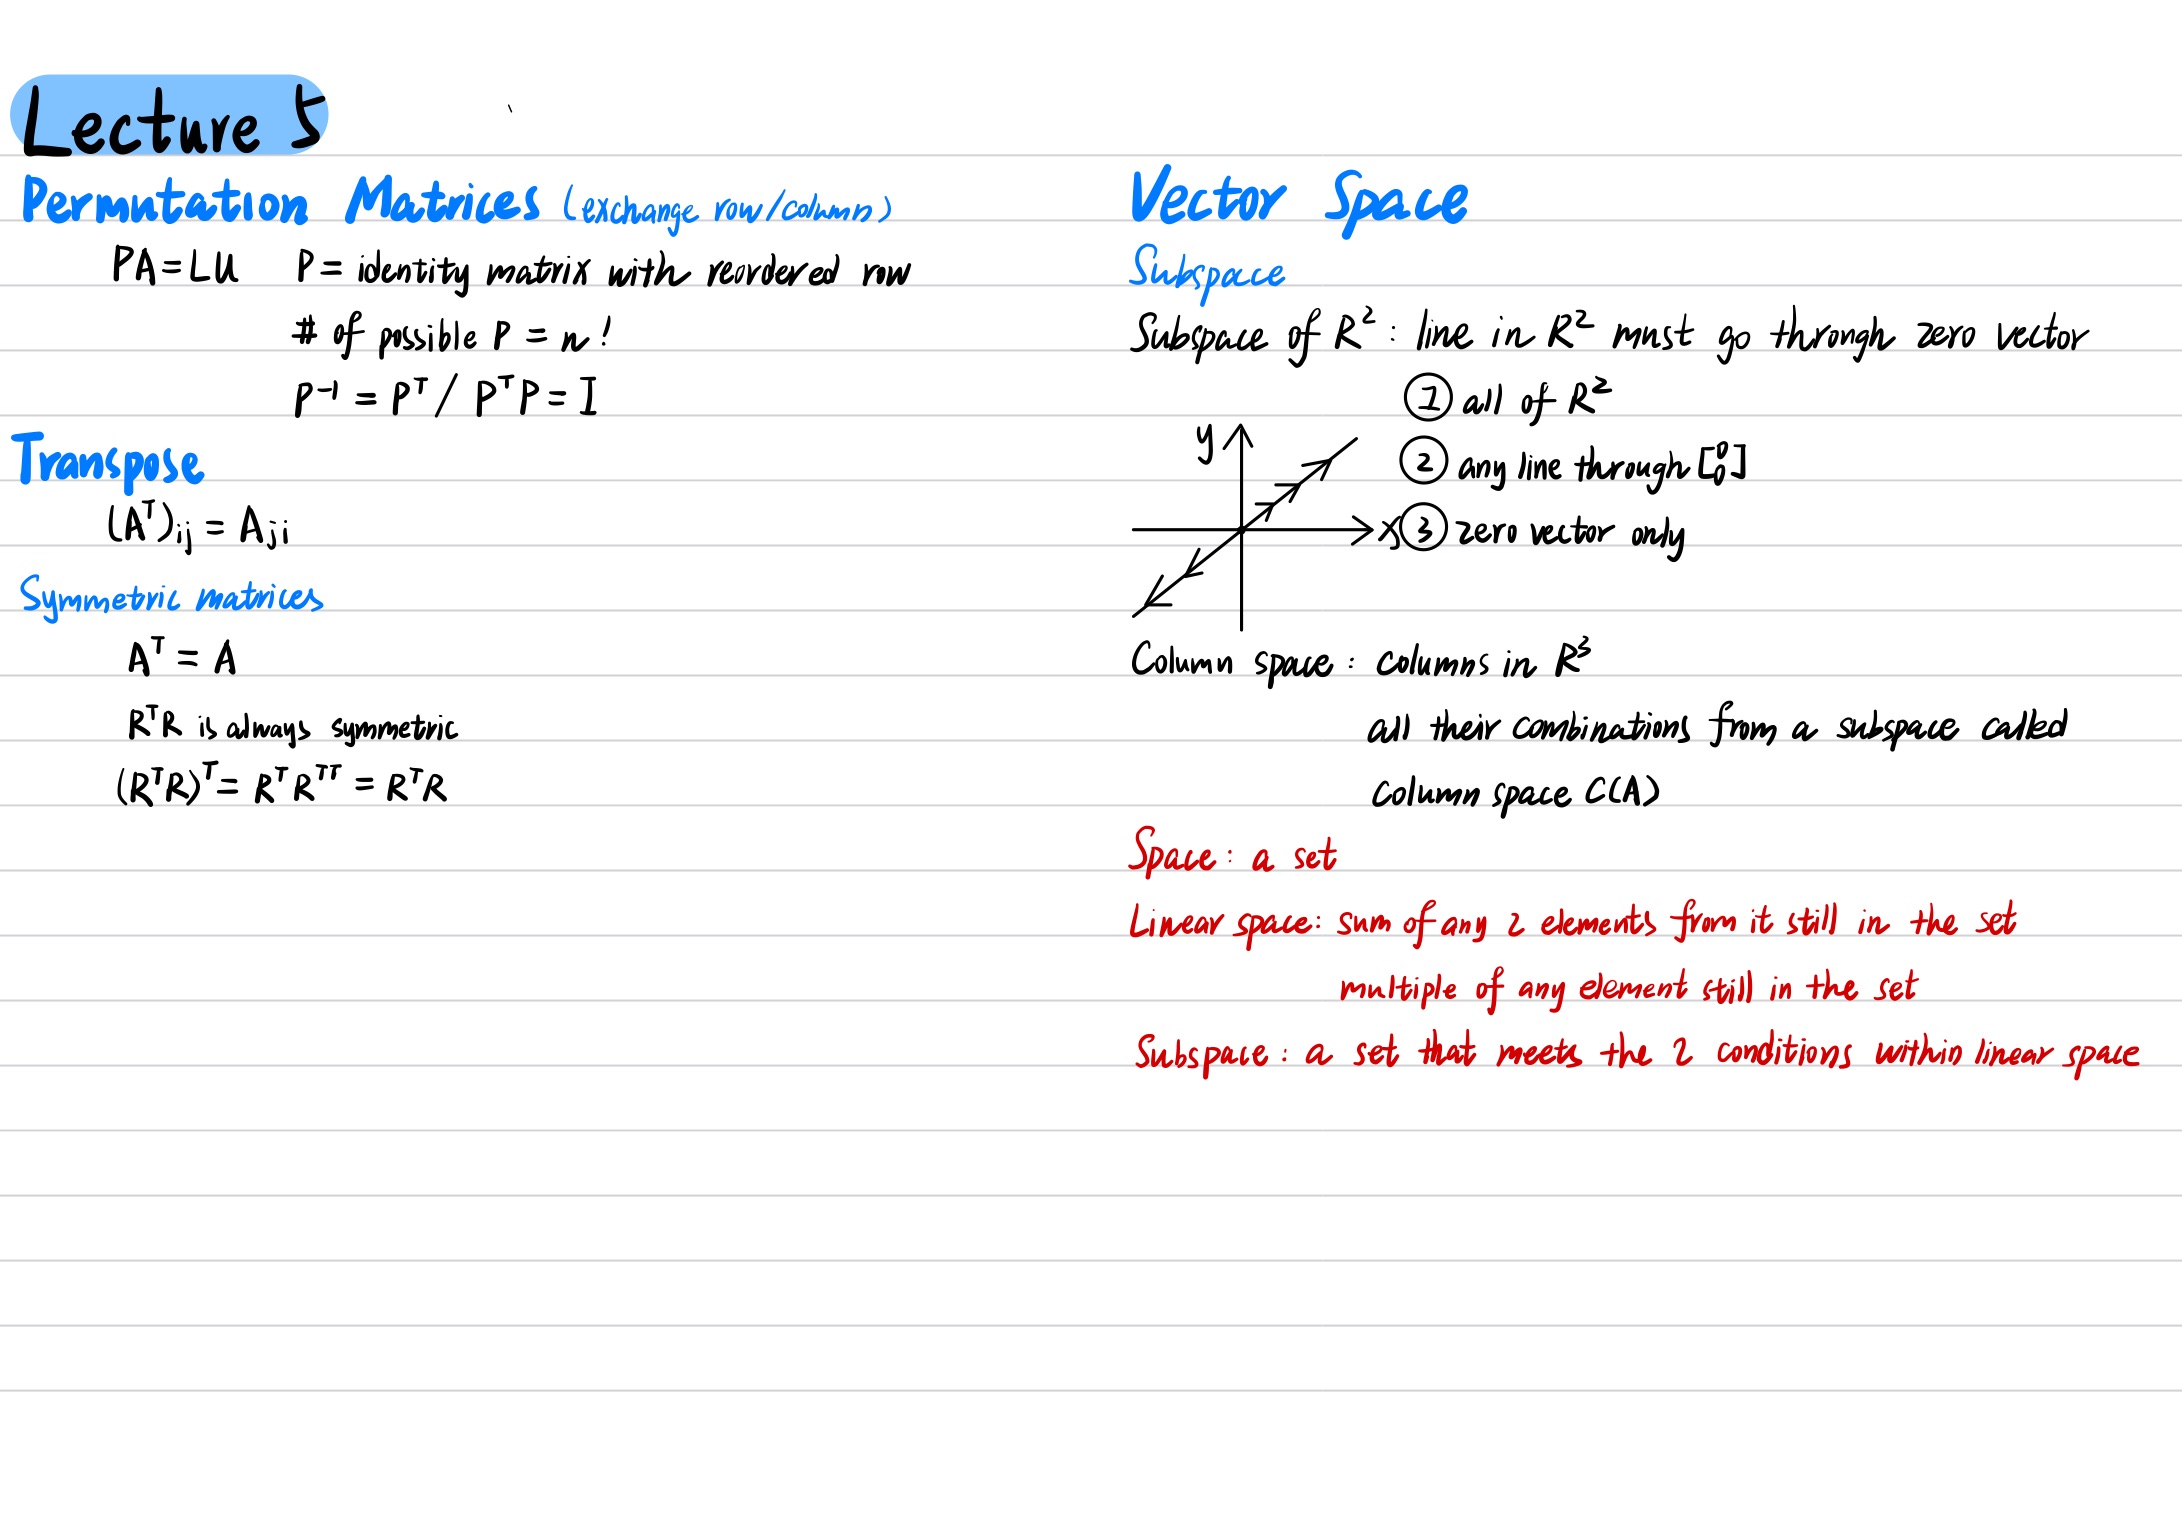 Lecture 5
Permutation Matrices (exchange row/column)
PA=LU P= identity matrix with reordered row
# of possible P = n!
P⁻¹ = Pᵀ / PᵀP = I
Transpose
(Aᵀ)ij = Aji
Symmetric matrices
Aᵀ = A
RᵀR is always symmetric
(RᵀR)ᵀ = RᵀRᵀᵀ = RᵀR
Vector Space
Subspace
Subspace of R²: line in R² must go through zero vector
① all of R²
② any line through [0 0]
③ zero vector only
y
x
Column space: columns in R³
all their combinations from a subspace called
column space C(A)
Space: a set
Linear space: sum of any 2 elements from it still in the set
multiple of any element still in the set
Subspace: a set that meets the 2 conditions within linear space